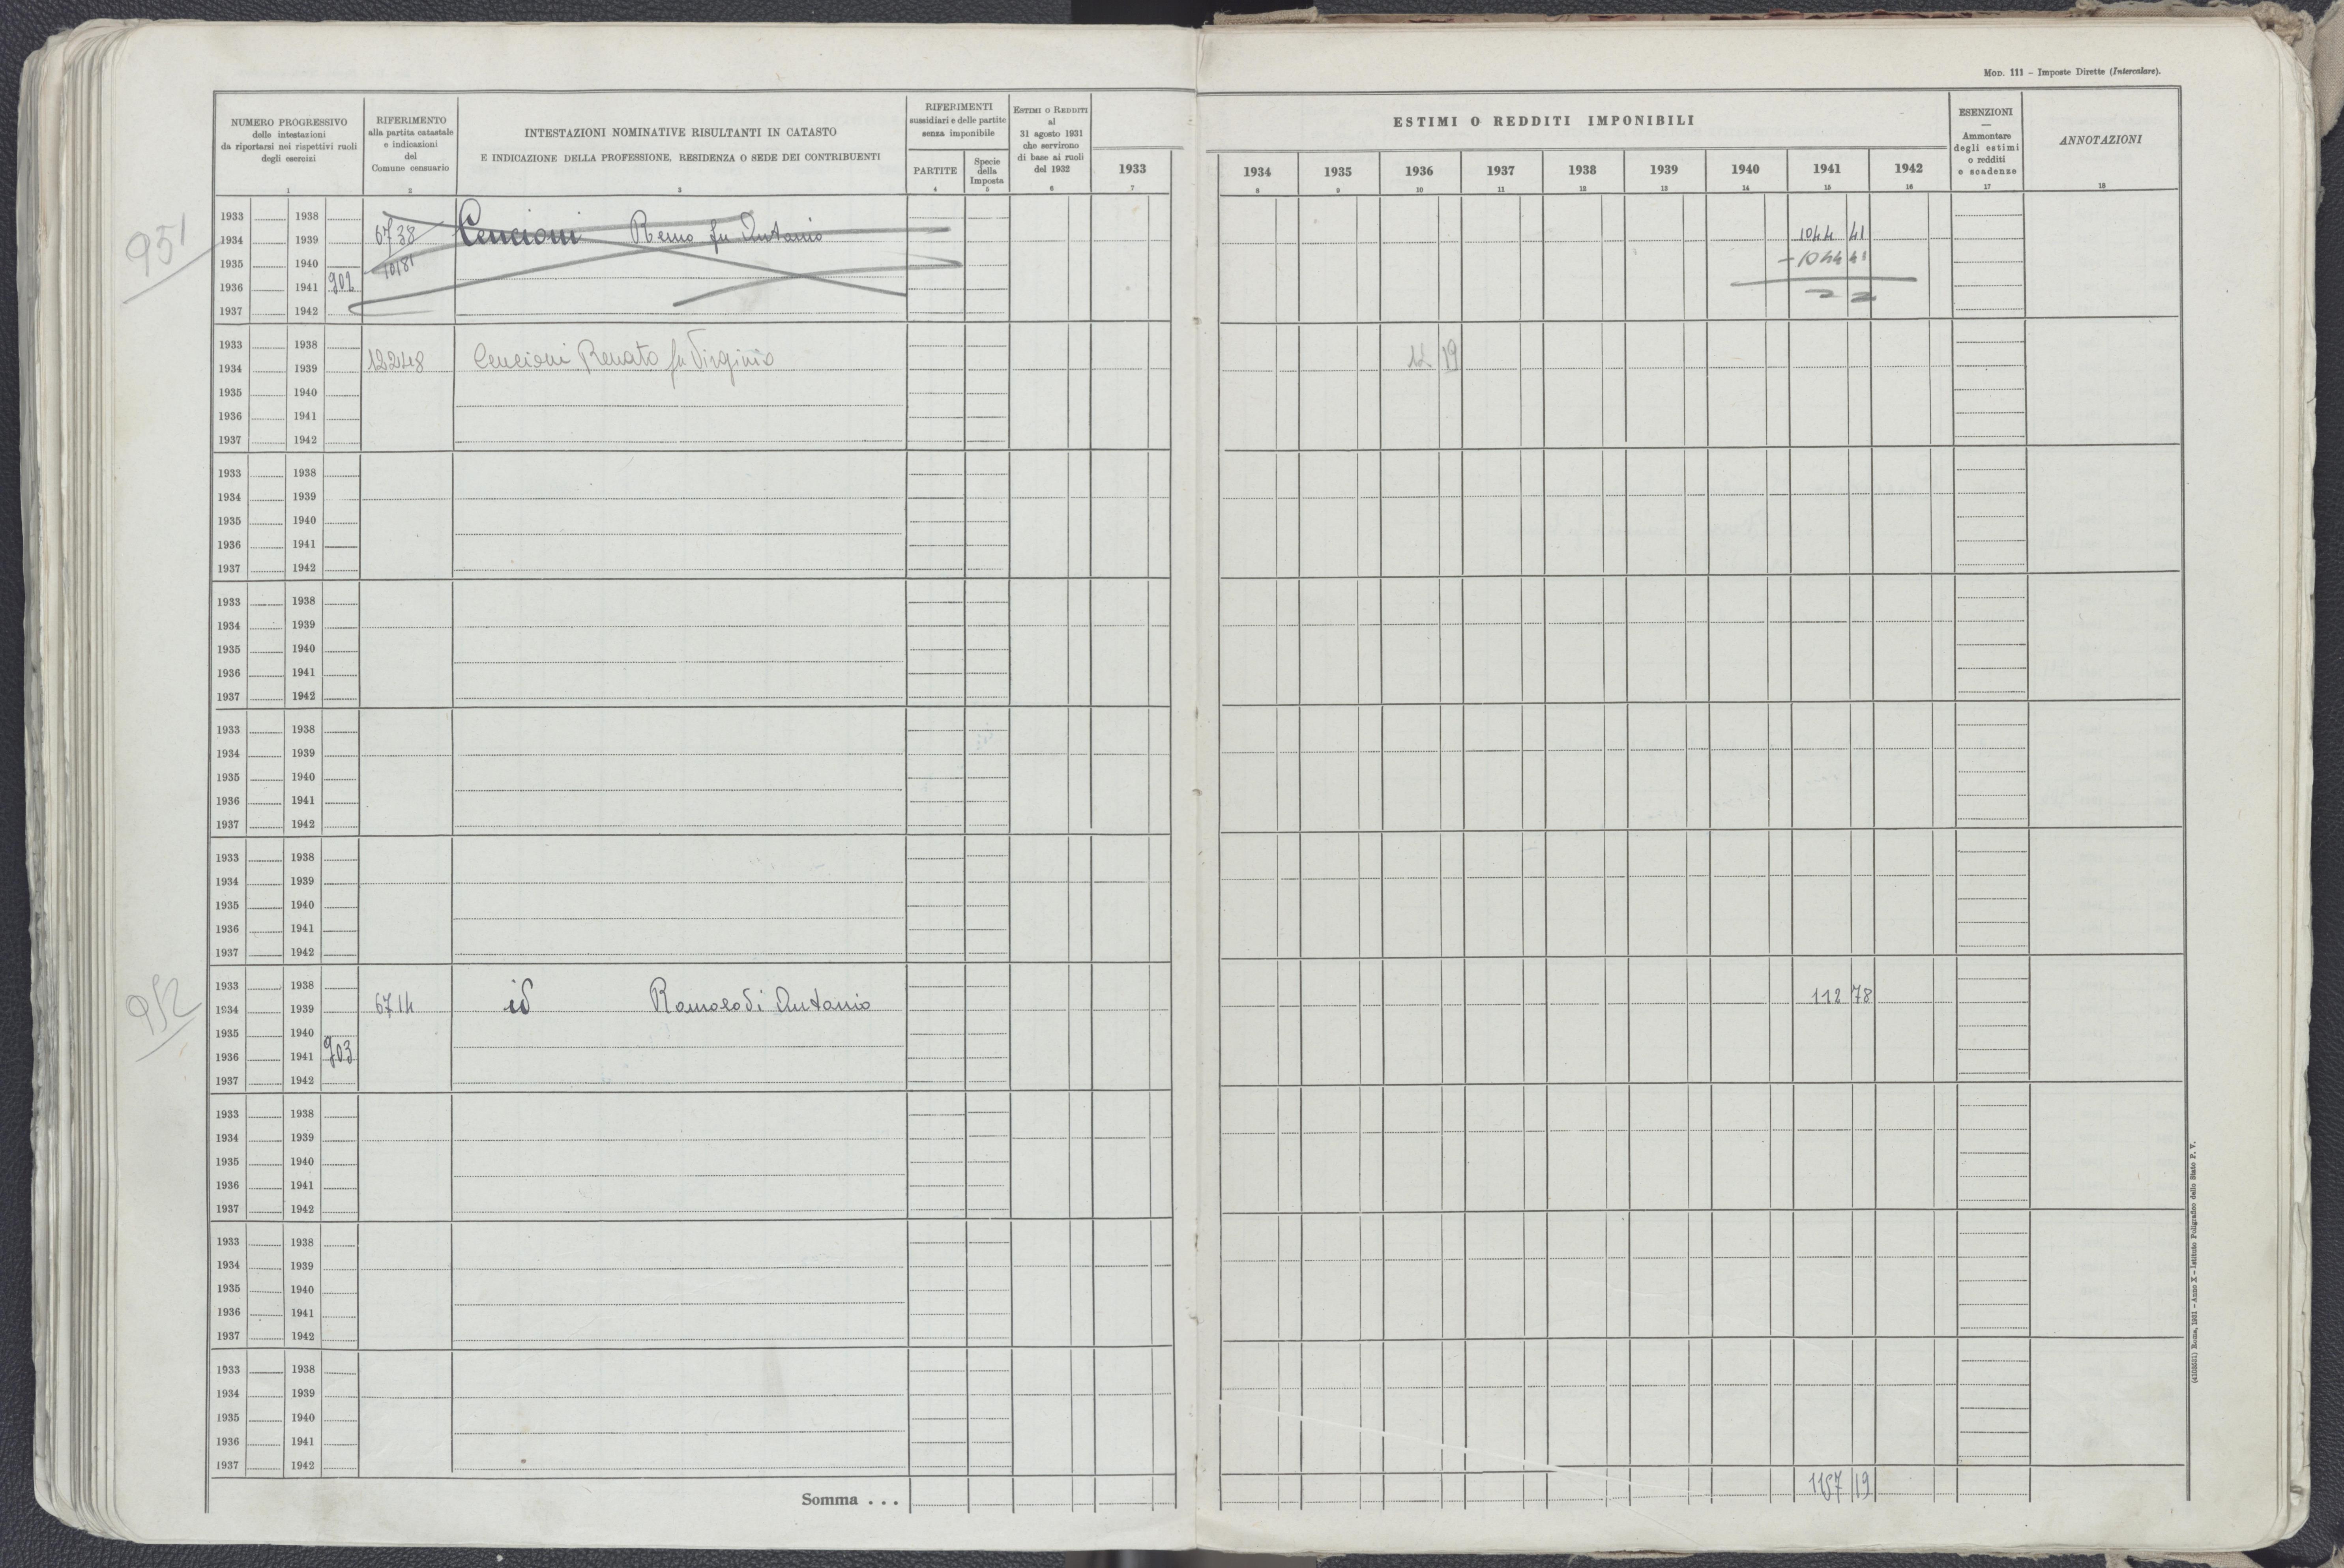 MOD. 111 – Imposte Dirette (Intercalare).
NUMERO PROGRESSIVO
delle intestazioni
da riportarsi nei rispettivi ruoli
degli esercizi
1
RIFERIMENTO
alla partita catastale
e indicazioni
del
Comune censuario
2
INTESTAZIONI NOMINATIVE RISULTANTI IN CATASTO
E INDICAZIONE DELLA PROFESSIONE, RESIDENZA O SEDE DEI CONTRIBUENTI
3
RIFERIMENTI
sussidiari e delle partite
senza imponibile
PARTITE
4
Specie
della
Imposta
5
ESTIMI O REDDITI
al
31 agosto 1931
che servirono
di base ai ruoli
del 1932
6
1933
7
ESTIMI O REDDITI IMPONIBILI
1934 1935 1936 1937 1938 1939 1940 1941 1942
8 9 10 11 12 13 14 15 16
ESENZIONI
—
Ammontare
degli estimi
o redditi
e scadenze
17
ANNOTAZIONI
18
951
1933 1938
1934 1939 6738 Cencioni Remo fu Antonio 1044 41
1935 1940 10181 - 1044 41
1936 1941 902
1937 1942
1933 1938
1934 1939 12248 Cencioni Renato fu Virginio 12 19
1935 1940
1936 1941
1937 1942
1933 1938
1934 1939
1935 1940
1936 1941
1937 1942
1933 1938
1934 1939
1935 1940
1936 1941
1937 1942
1933 1938
1934 1939
1935 1940
1936 1941
1937 1942
1933 1938
1934 1939
1935 1940
1936 1941
1937 1942
952
1933 1938
1934 1939 6714 id Romolo di Antonio 112 78
1935 1940
1936 1941 903
1937 1942
1933 1938
1934 1939
1935 1940
1936 1941
1937 1942
1933 1938
1934 1939
1935 1940
1936 1941
1937 1942
1933 1938
1934 1939
1935 1940
1936 1941
1937 1942
Somma . . . 1157 19
Roma, 1931 – Anno X – Istituto Poligrafico dello Stato P. V.